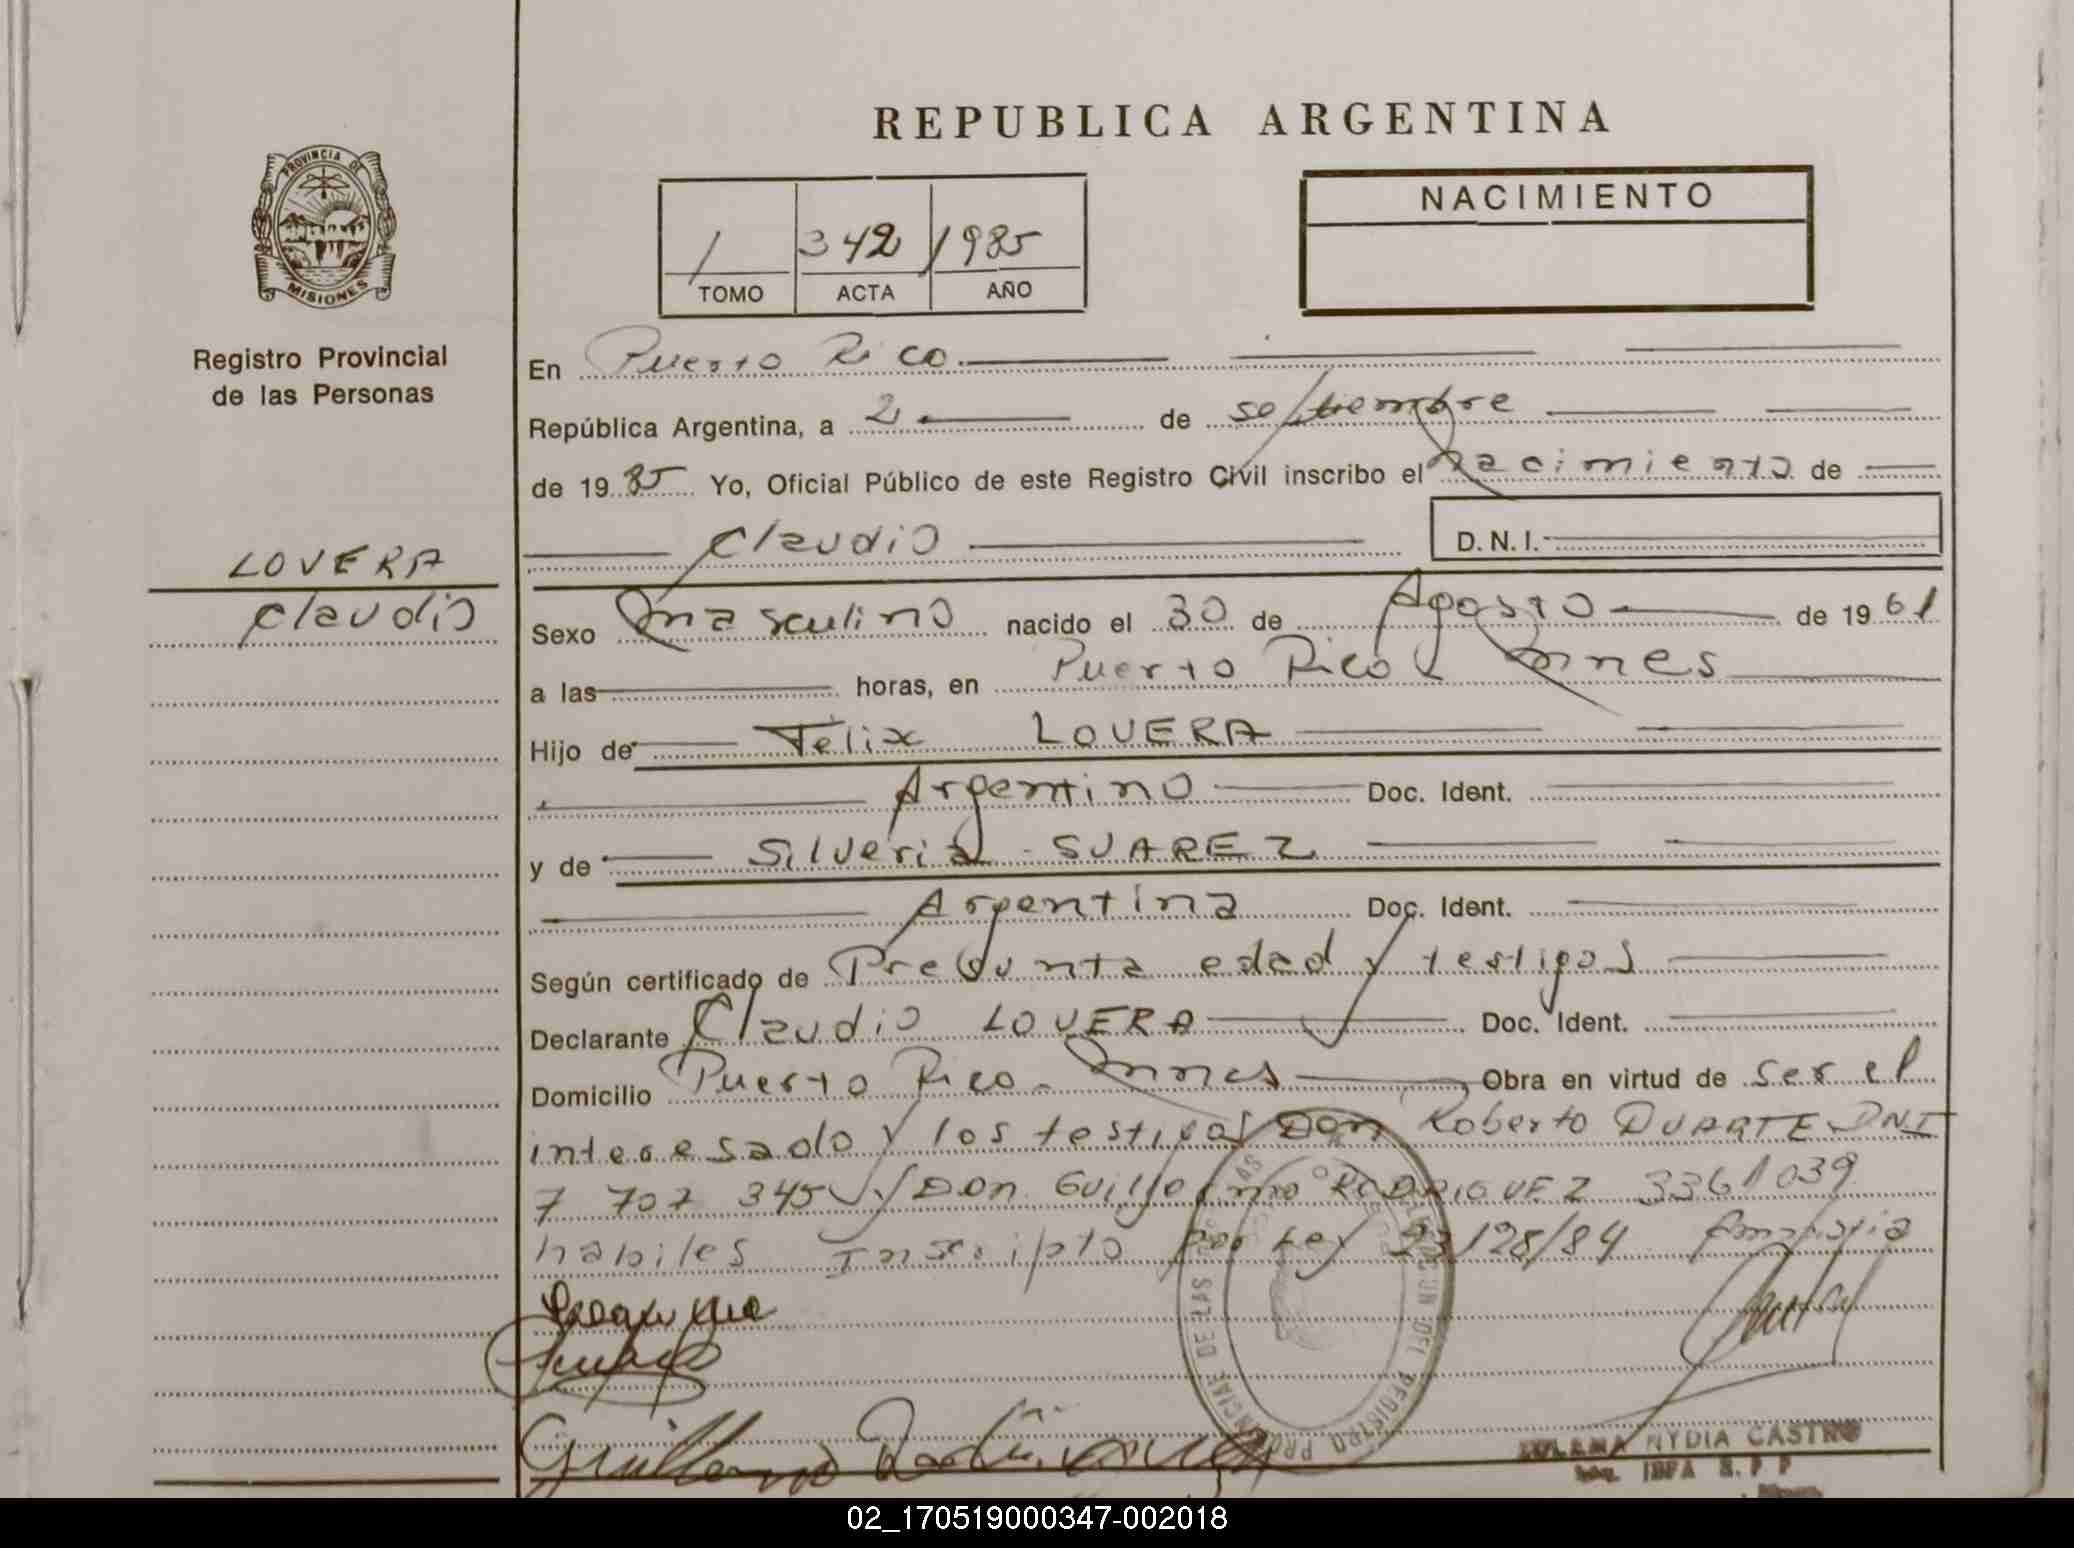 REPUBLICA ARGENTINA
PROVINCIA DE
MISIONES
Registro Provincial
de las Personas
1 342 1985
TOMO ACTA AÑO
NACIMIENTO
En Puerto Rico.
República Argentina, a 2 de septiembre
de 1985 Yo, Oficial Público de este Registro Civil inscribo el nacimiento de
Claudio D.N.I.
LOVERA
Claudio
Sexo Masculino nacido el 30 de Agosto de 1961
a las horas, en Puerto Rico Mnes
Hijo de Felix LOVERA
Argentino Doc. Ident.
y de Silveria - SUAREZ
Argentina Doc. Ident.
Según certificado de Presunta edad y testigos
Declarante Claudio LOVERA Doc. Ident.
Domicilio Puerto Rico - Mnes Obra en virtud de ser el
interesado y los testigos Don Roberto DUARTE DNI
7 707 345 y Don Guillermo RODRIGUEZ 3361039
habiles Inscripto por Ley 23/128/84 Amnistia
Guillermo Rodriguez
NYDIA CASTRO
02_170519000347-002018